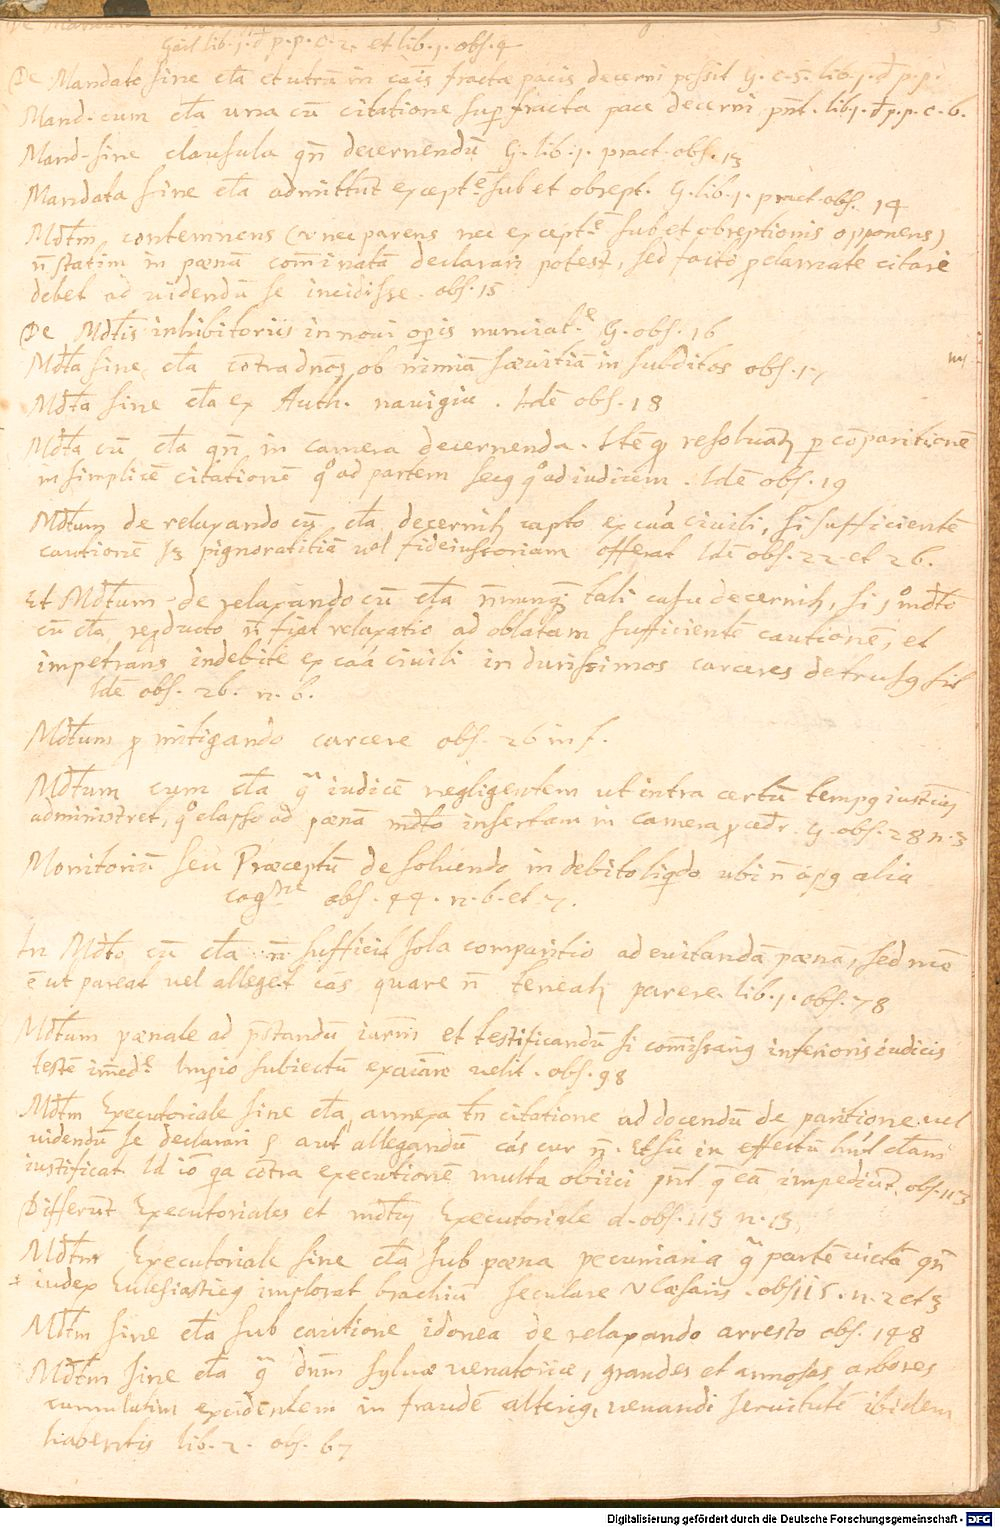 5
Gail lib. 1. d p. p. c. 2. et lib. 1. obs. 4
De Mandato sine cła et utrū in cāis fractæ pacis decerni possit G. c. 5. lib. 1. d p. p.
Mand. cum cła una cū citatione sup fracta pace decerni pnt. lib. 1. d p. p. c. 6.
Mand. sine clausula qn̄ decernendū G. lib. 1. pract. obs. 13
Mandata sine cła admittūt except.ē sub et obrept. G. lib. 1. pract. obs. 14
Mdtm contemnens (v nec parens nec except.ē sub et obreptionis opponens)
n̄ statim in pænā com̄inatā declarari potest, sed facto p̱clamate citari
debet ad videndū se incidisse. obs. 15
De Mdtis inhibitoriis in novi opis nunciat.e G. obs. 16
Mdta sine cła cōtra dn̄os ob nimiā sævitiā in subditos obs. 17
Mdta sine cła ex Auth. navigia. Idē obs. 18
Mdta cū cła qn̄ in camera decernenda. Itē q resolvat p cōparitionē
in simplicē citationē q° ad partem secq q° ad iudicem. Idē obs. 19
Mdtum de relaxando cū cła decernit capto ex cāa civili, si sufficientē
cautionē pignoratitiā vel fideiussoriam offerat Idē obs. 22 et 26.
Et Mdtum de relaxando cū cła n̄nunq tali casu decernit, si 1° mdto
cū cła reproducto n̄ fiat relaxatio ad oblatam sufficientē cautionē, et
impetrans indebite ex cāa civili in durissimos carceres detrusq sit
Idē obs. 26. n. 6.
Mdtum p mitigando carcere obs. 26 in f.
Mdtum cum cła q iudicē negligentem ut intra certū tempq iustitiā
administret, q° elapso ad pænā mdto insertam in camera pcedr. G. obs. 28 n. 3
Monitoriū seu Præceptū de solvendo in debito liqdo ubi n̄ opq alia
cogne obs. 44. n. 6. et 7.
In Mdto cū cła n̄ sufficit sola comparitio ad evitandā pænā, sed nēē
ē ut pareat vel alleget cās quare n̄ teneat parere. lib. 1. obs. 78
Mdtum pænale ad pstandū iurm̄ et testificandū si com̄issariq inferioris iudicis
testē im̄ed.e Impio subiectū exaiāre velit. obs. 98
Mdtm Executoriale sine cła, annexa tn̄ citatione ad docendū de paritione vel
videndū se declarari aut allegandū cās cur n̄. Et sic in effectū hūt clam
iustificat. Id iō qa cōtra executionē multa obiici pn̄t q eā impediūt. obs. 113
Differūt Executoriales et mdtū Executoriale d. obs. 113 n. 13
Mdtm Executoriale sine cła sub pæna pecuniaria q partē victā qn̄
iudex Ecclesiasticq implorat brachiū seculare v Cæsaris. obs 115. n. 2 et 3
Mdtm sine cła sub cautione idonea de relaxando arresto obs. 148
Mdtm sine cła q dnm sylvæ venatoriæ, grandes et annosas arbores
cumulatim excidentem in fraudē alteriq, venandi servitutē ibidem
habentis lib. 2. obs. 67
Digitalisierung gefördert durch die Deutsche Forschungsgemeinschaft - DFG